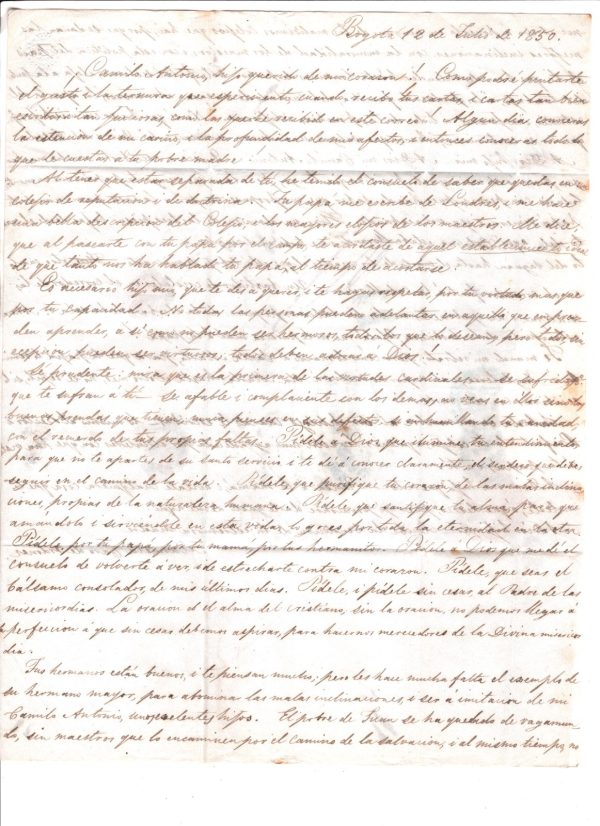 Bogotá 12 de Julio de 1850.
¡Camilo Antonio, hijo querido de mi corazon! Como podré pintarte
el gusto i la ternura que esperimento, cuando recibo tus cartas, i cartas tan bien
escritas i tan juiciosas como las que he recibido en este correo. Algun dia conoceras
la estencion de mi cariño, i la profundidad de mis afectos, i entonces conoceras todo lo
que le cuestas á tu pobre madre.
Al tener que estar separada de ti, he tenido el consuelo de saber que quedas en un
colejio de reputacion i de doctrina. Tu papá me escribe de Londres, i me hace
una bella descripcion del Colejio, i los mayores elojios de los maestros. Me dice,
que al pasearte con tu papá por el campo, te acordaste de aquel establecimiento
de que tanto nos ha hablado tu papá, al tiempo de acostarse.
Es necesario hijo mio, que te hagas respetar, por tu virtud, mas que
por tu capacidad. No todas las personas pueden adelantar en aquello que empren-
den aprender, a sí como no pueden ser hermosos, todos los que lo desean; pero todos sin
escepcion pueden ser virtuosos, todos deben adorar a Dios.
Se prudente: mira que es la primera de las virtudes cardinales
que te sufran a ti. Se afable i complaciente con los demas,
buenas prendas que tienen, nunca pienses en sus defectos, tu vanidad,
con el recuerdo de tus propias faltas. Pídele a Dios que ilumine, tu entendimiento
para que no te apartes de su santo servicio i te dé á conocer claramente, el sendero que debes
seguir en el camino de la vida. Pídele, que purifique tu corazon de las malas inclina
ciones, propias de la naturaleza humana. Pídele, que santifique tu alma, para que
amandolo i sirviendole en esta vida, lo goces por toda la eternidad en la otra.
Pídele, por tu papá, por tu mamá, por tus hermanitos. Pídele a Dios que me dé el
consuelo de volverte á ver, i de estrecharte contra mi corazon. Pídele, que seas el
bálsamo consolador, de mis últimos dias. Pídele, i pídele sin cesar, al Padre de las
misericordias. La oracion es el alma del cristiano, sin la oracion, no podemos llegar á
la perfeccion a que sin cesar debemos aspirar, para hacernos merecedores de la Divina misericor
dia.
Tus hermanos están buenos, i te piensan mucho; pero les hace mucha falta el ejemplo de
su hermano mayor, para abominar las malas inclinaciones, i ser á imitacion de mi
Camilo Antonio, unos escelentes hijos. El pobre de Juan se ha quedado de vagamun-
do, sin maestros que lo encaminen por el camino de la salvacion, i al mismo tiempo, no